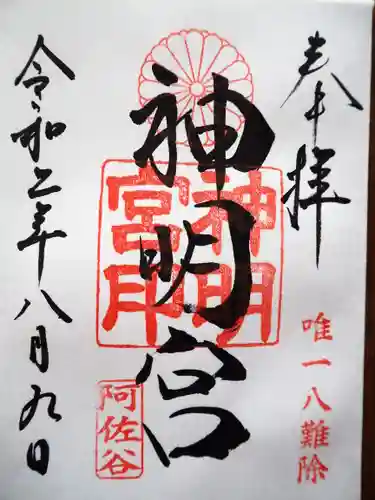 奉拝
唯一八難除
神明宮
神明宮印
阿佐谷
令和三年八月九日